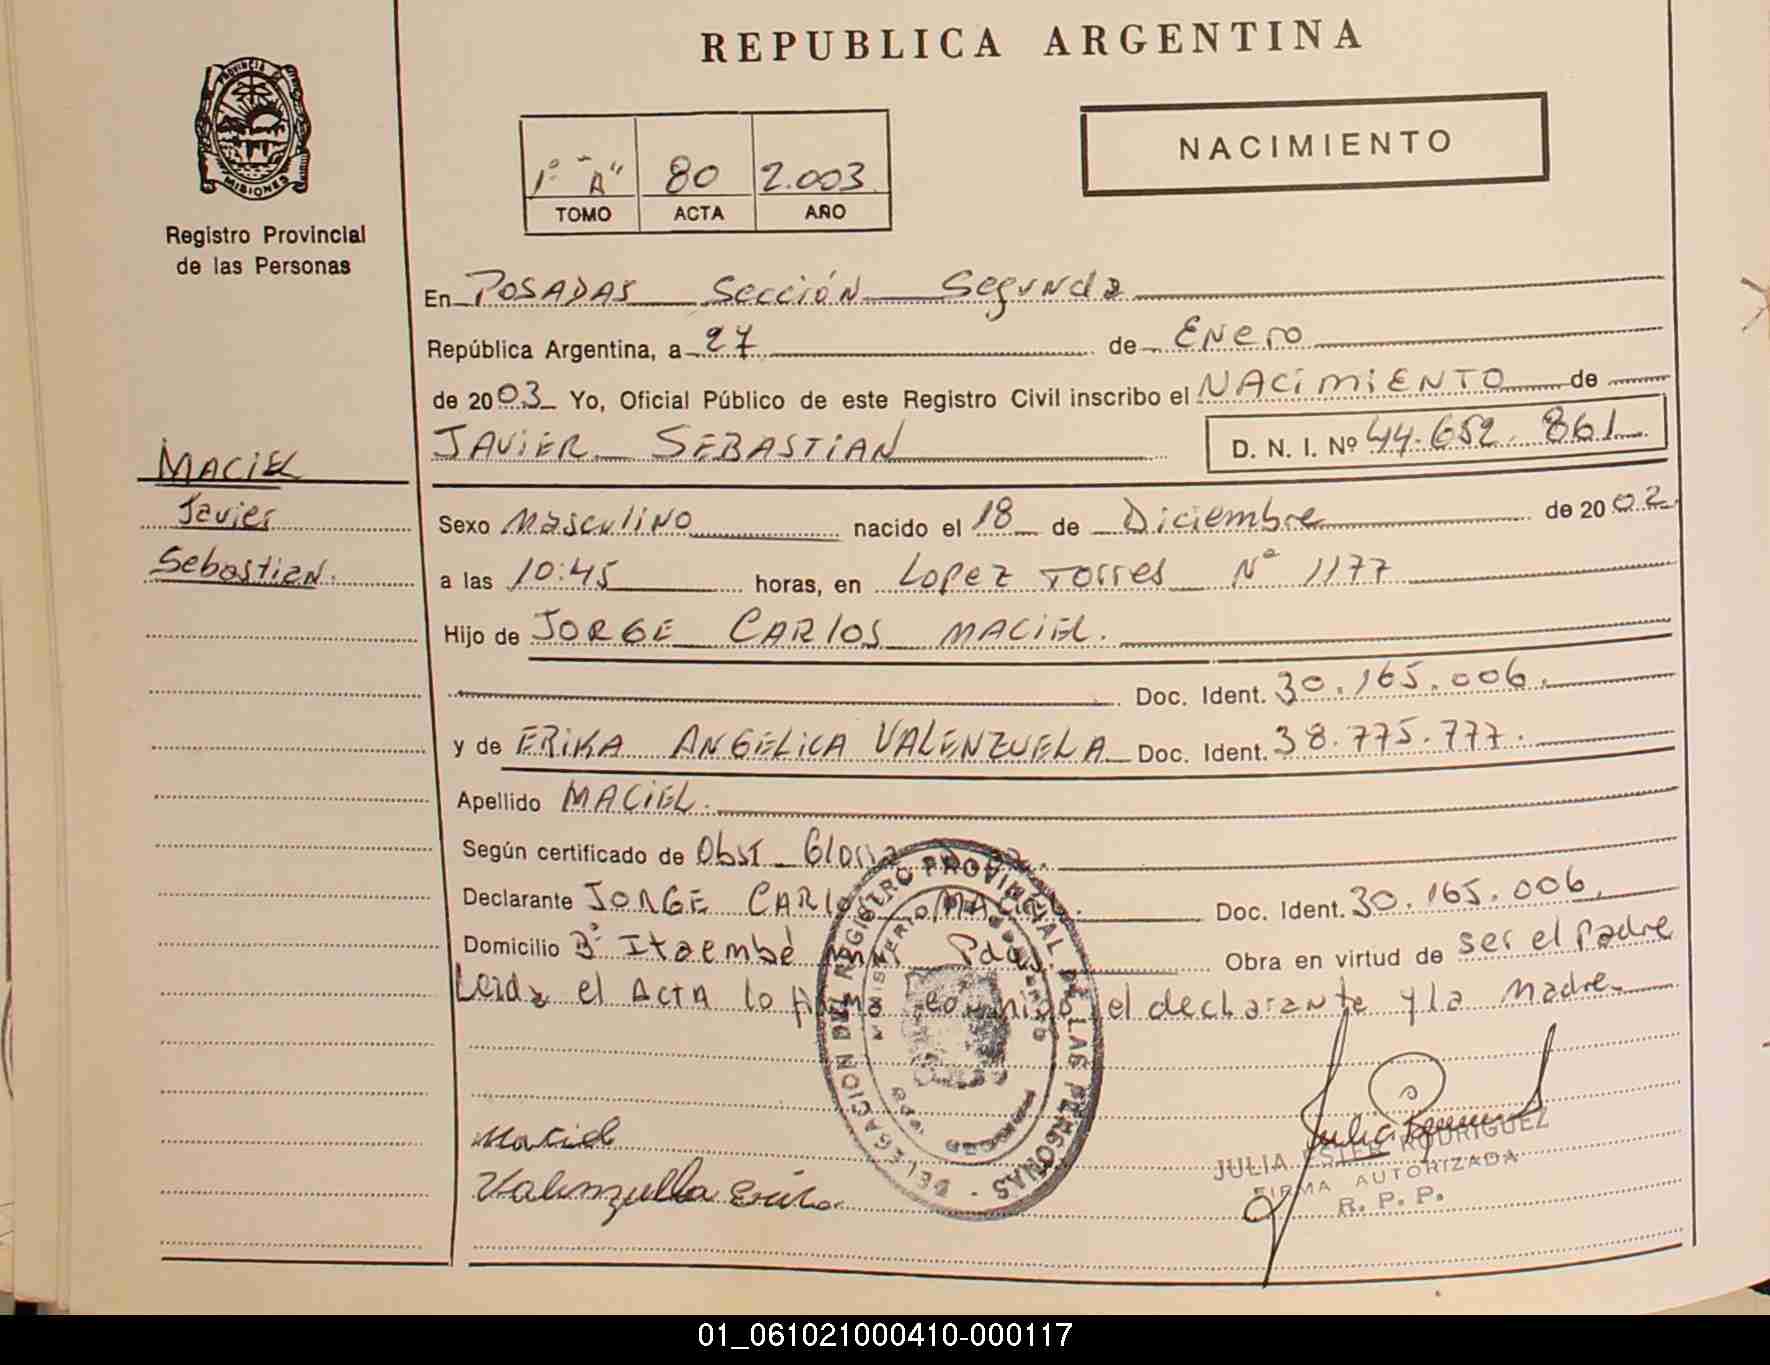 REPUBLICA ARGENTINA
PROVINCIA DE
MISIONES
Registro Provincial
de las Personas
1º "A" 80 2.003
TOMO ACTA AÑO
NACIMIENTO
En POSADAS Sección Segunda
República Argentina, a 27 de Enero
de 2003 Yo, Oficial Público de este Registro Civil inscribo el NACIMIENTO de
JAVIER SEBASTIAN D. N. I. Nº 44.652.861
MACIEL
Javier
Sebastian.
Sexo Masculino nacido el 18 de Diciembre de 2002
a las 10:45 horas, en Lopez Torres Nº 1177
Hijo de JORGE CARLOS MACIEL.
Doc. Ident. 30.165.006.
y de ERIKA ANGELICA VALENZUELA Doc. Ident. 38.775.777.
Apellido MACIEL.
Según certificado de Obst. Gloria
Declarante JORGE CARLOS MACIEL. Doc. Ident. 30.165.006.
Domicilio Bº Itaembé Miní Pdas. Obra en virtud de ser el Padre
Leida el ACTA lo firma conmigo el declarante y la Madre
DELEGACION DEL REGISTRO PROVINCIAL DE LAS PERSONAS
MINISTERIO DE
Maciel
Valenzuella Erika
JULIA ESTER RODRIGUEZ
FIRMA AUTORIZADA
R. P. P.
01_061021000410-000117